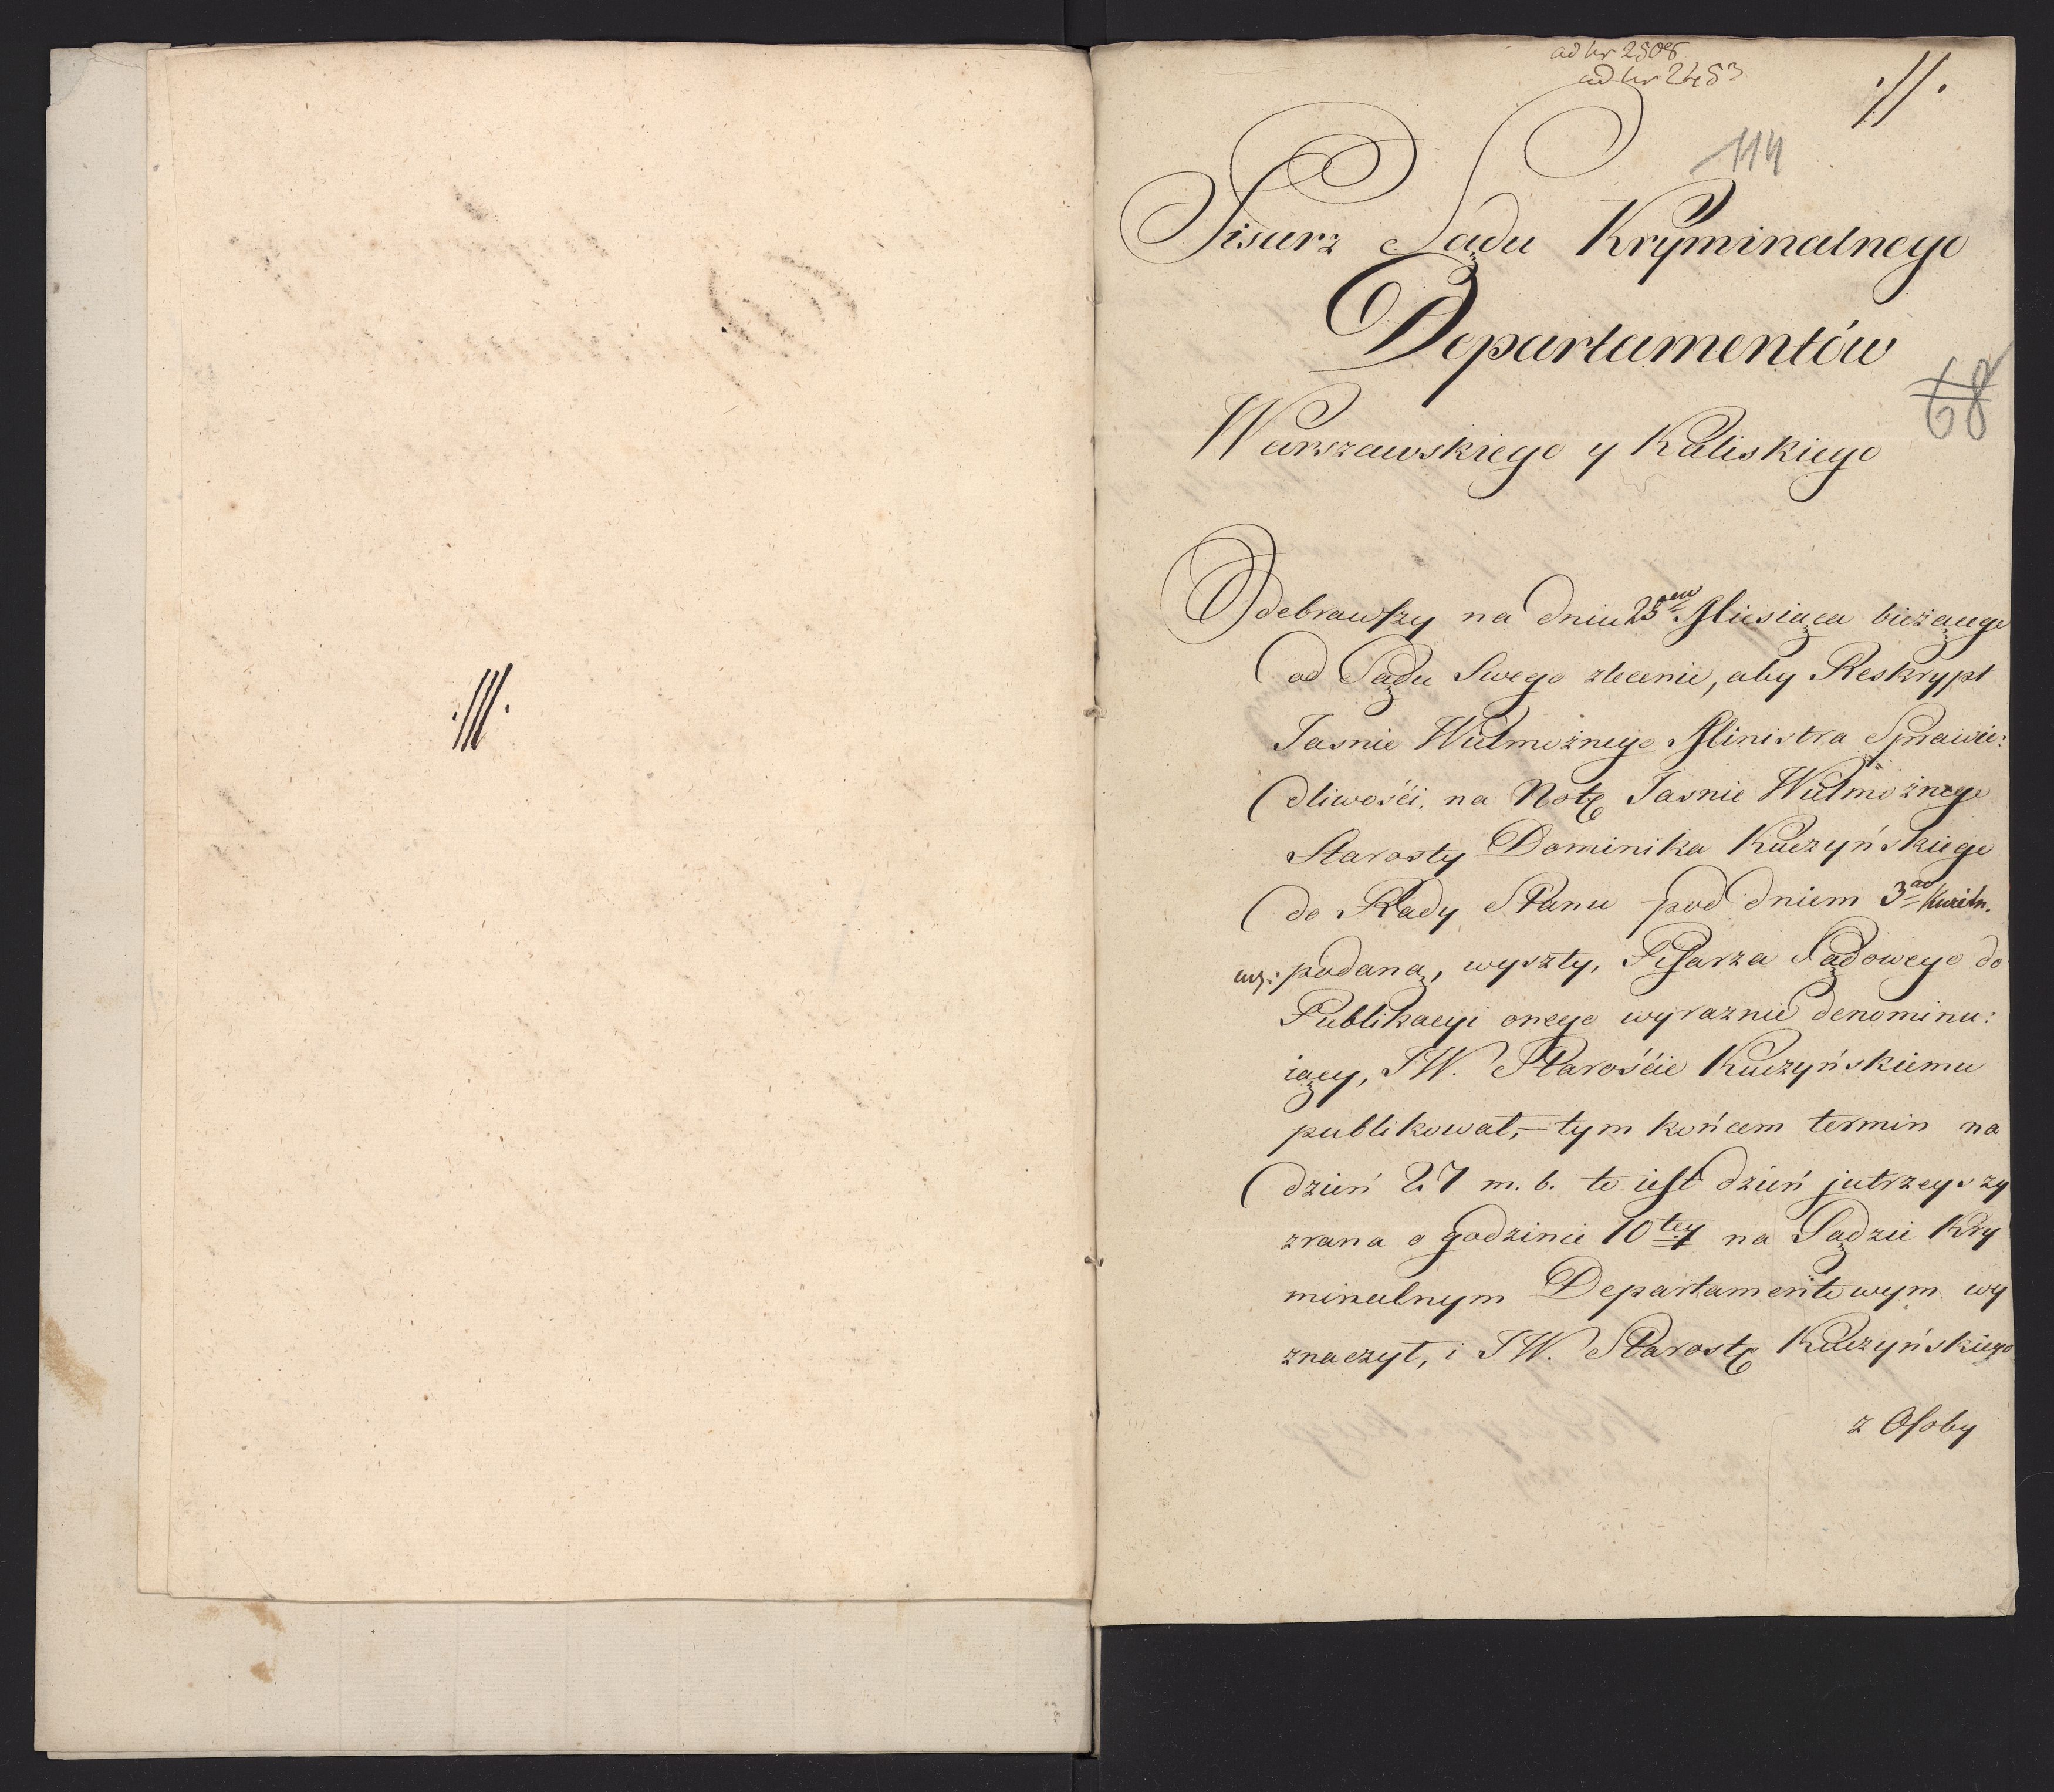 .///.
ad Nr 2508
ad Nr 2453
.//.
114
Pisarz Sądu Kryminalnego
Departamentów
68
Warszawskiego y Kaliskiego
Odebrawszy na dniu 25em Miesiąca bieżącego
od Sądu Swego zlecenie, aby Reskrypt
Jasnie Wielmożnego Ministra Sprawie:
dliwości, na Notę Jasnie Wielmożnego
Starosty Dominika Kuczyńskiego
do Rady Stanu pod dniem 3go Kwietn.
podaną, wyszły, Pisarza Sądowego do
Publikacyi onego wyraznie denominu:
iący, JW. Staroście Kuczyńskiemu
publikował, – tym końcem termin na
dzień 27 m. b. to iest dzień jutrzeyszy
zrana o godzinie 10tey na Sądzie Kry
minalnym Departamentowym wy
znaczył, i JW. Starostę Kuczyńskiego
z Osoby